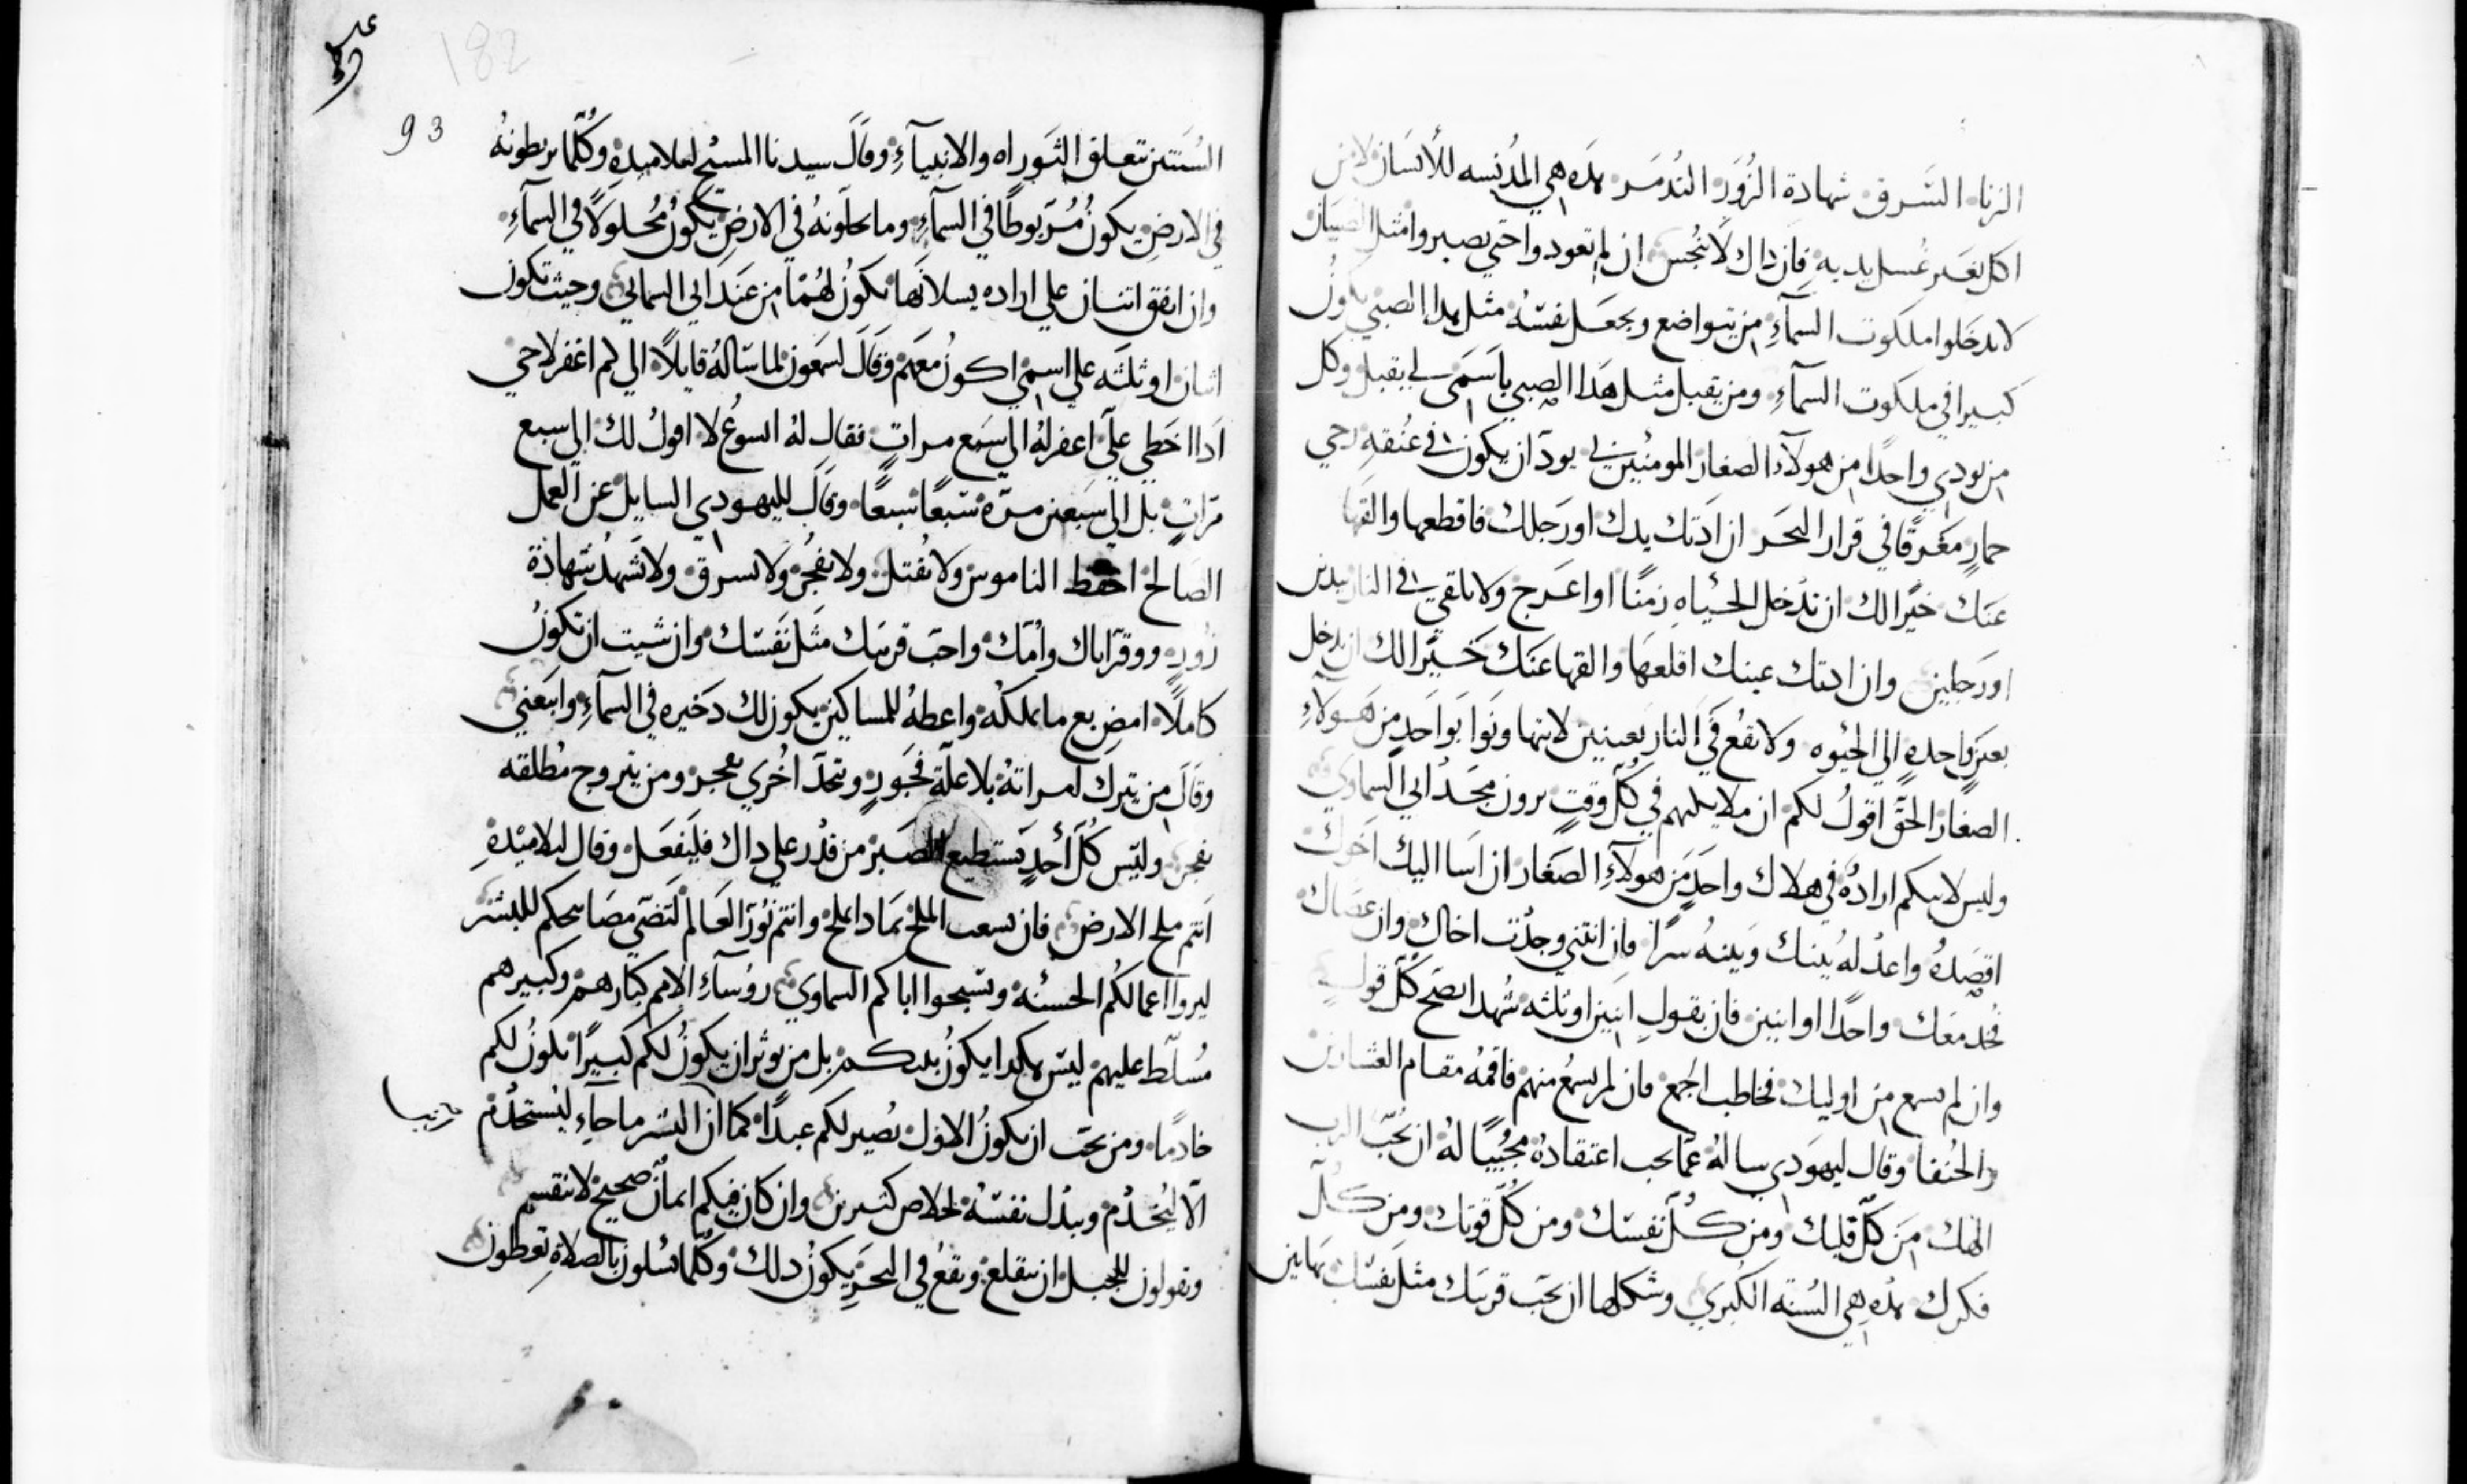 الزناء السرق شهادة الزور التدمر هذه هي المدنسه للانسان لا من
اكل بغير غسل يديه فان داك لا ينجس ان لم تعودوا حتي تصيروا مثل الصبيان
لا تدخلوا ملكوت السماء من يتواضع ويجعل نفسه مثل هدا الصبي يكون
كبيرا في ملكوت السماء ومن يقبل مثل هدا الصبي باسمي لي يقبل وكل
من يودي واحدا من هولاء الصغار المومنين لي يود ان يكون في عنقه رحي
حمار مغرقا في قرار البحر ان ادتك يدك او رجلك فاقطعها والقها
عنك خيرا لك ان تدخل الحياه زمنا او اعرج ولا تلقي في النار بيدين
او رجلين وان ادتك عينك اقلعها والقها عنك خيرا لك ان تدخل
بعين واحده الي الحيوه ولا تقع في النار بعينين لا تتهاونوا بواحد من هولاء
الصغار الحق اقول لكم ان ملايكتهم في كل وقت يرون مجد ابي السماوي
وليس لابيكم اراده في هلاك واحد من هولاء الصغار ان اسا اليك اخوك
اقصده واعد له بينك وبينه سرا فان انثني وجدت اخاك وان عصاك
فخد معك واحدا او اثنين فان بقول اثنين او ثلثه شهدا يصح كل قول
وان لم يسمع من اوليك فخاطب الجمع فان لم يسمع منهم فاقمه مقام العشارين
والحنفا وقال ليهودي ساله عما يجب اعتقاده مجيبا له ان تحب الرب
الهك من كل قلبك ومن كل نفسك ومن كل قوتك ومن كل
فكرك هده هي السنه الكبري وشكلها ان تحب قريبك مثل نفسك بهاتين
عليه
182
93
السنتين تتعلق التوراه والانبياء وقال سيدنا المسيح لتلاميده وكلما تربطونه
في الارض يكون مربوطا في السماء وما تحلونه في الارض يكون محلولا في السماء
وان اتفق اتنان علي اراده يسلانها تكون لهما من عند ابي السمايي وحيث تكون
اثنان او ثلثه علي اسمي اكون معهم وقال لسمعون لما ساله قايلا الي كم اغفر لاخي
ادا اخطي علي اعفر له الي سبع مرات فقال له ايسوع لا اقول لك الي سبع
مرات بل الي سبعين مرة سبعا سبعا وقال لليهودي السايل عن العمل
الصالح احفظ الناموس ولا تقتل ولا تفجر ولا تسرق ولا تشهد شهادة
زور ووقر اباك وامك واحب قريبك مثل نفسك وان شيت ان تكون
كاملا امض بع ما تملكه واعطه للمساكين يكون لك دخيره في السماء واتبعني
وقال من يترك امراته بلا علة فجور ويتخد اخري يفجر ومن يتزوج مطلقه
يفجر وليس كل احد يستطيع الصبر من قدر علي داك فليفعل وقال لتلاميده
انتم ملح الارض فان تسعب الملح بمادا يملح وانتم نور العالم لتضي مصابيحكم للبشر
ليروا اعمالكم الحسنه وتسبحوا اباكم السماوي روساء الامم كبارهم وكبيرهم
مسلط عليهم ليس هكدا يكون بينكم بل من يوثر ان يكون لكم كبيرا يكون لكم
خادما ومن يحب ان يكون الاول يصير لكم عبدا كما ان البشر ما جاء ليستخدم
الا ليخدم ويبدل نفسه لخلاص كثيرين وان كان فيكم ايمان صحيح لا ينقسم
وتقولون للجبل ان ينقلع ويقع في البحر يكون دلك وكلما تسلون بالصلاة تعطون